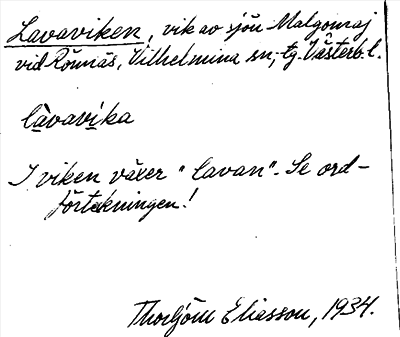 Lavaviken, vik av sjön Malgomaj
vid Rönnäs, Vilhelmina sn, tg. Västerb. l.
lavavika
I viken växer "lavan". Se ord-
förteckningen!
Thorbjörn Eliasson, 1934.